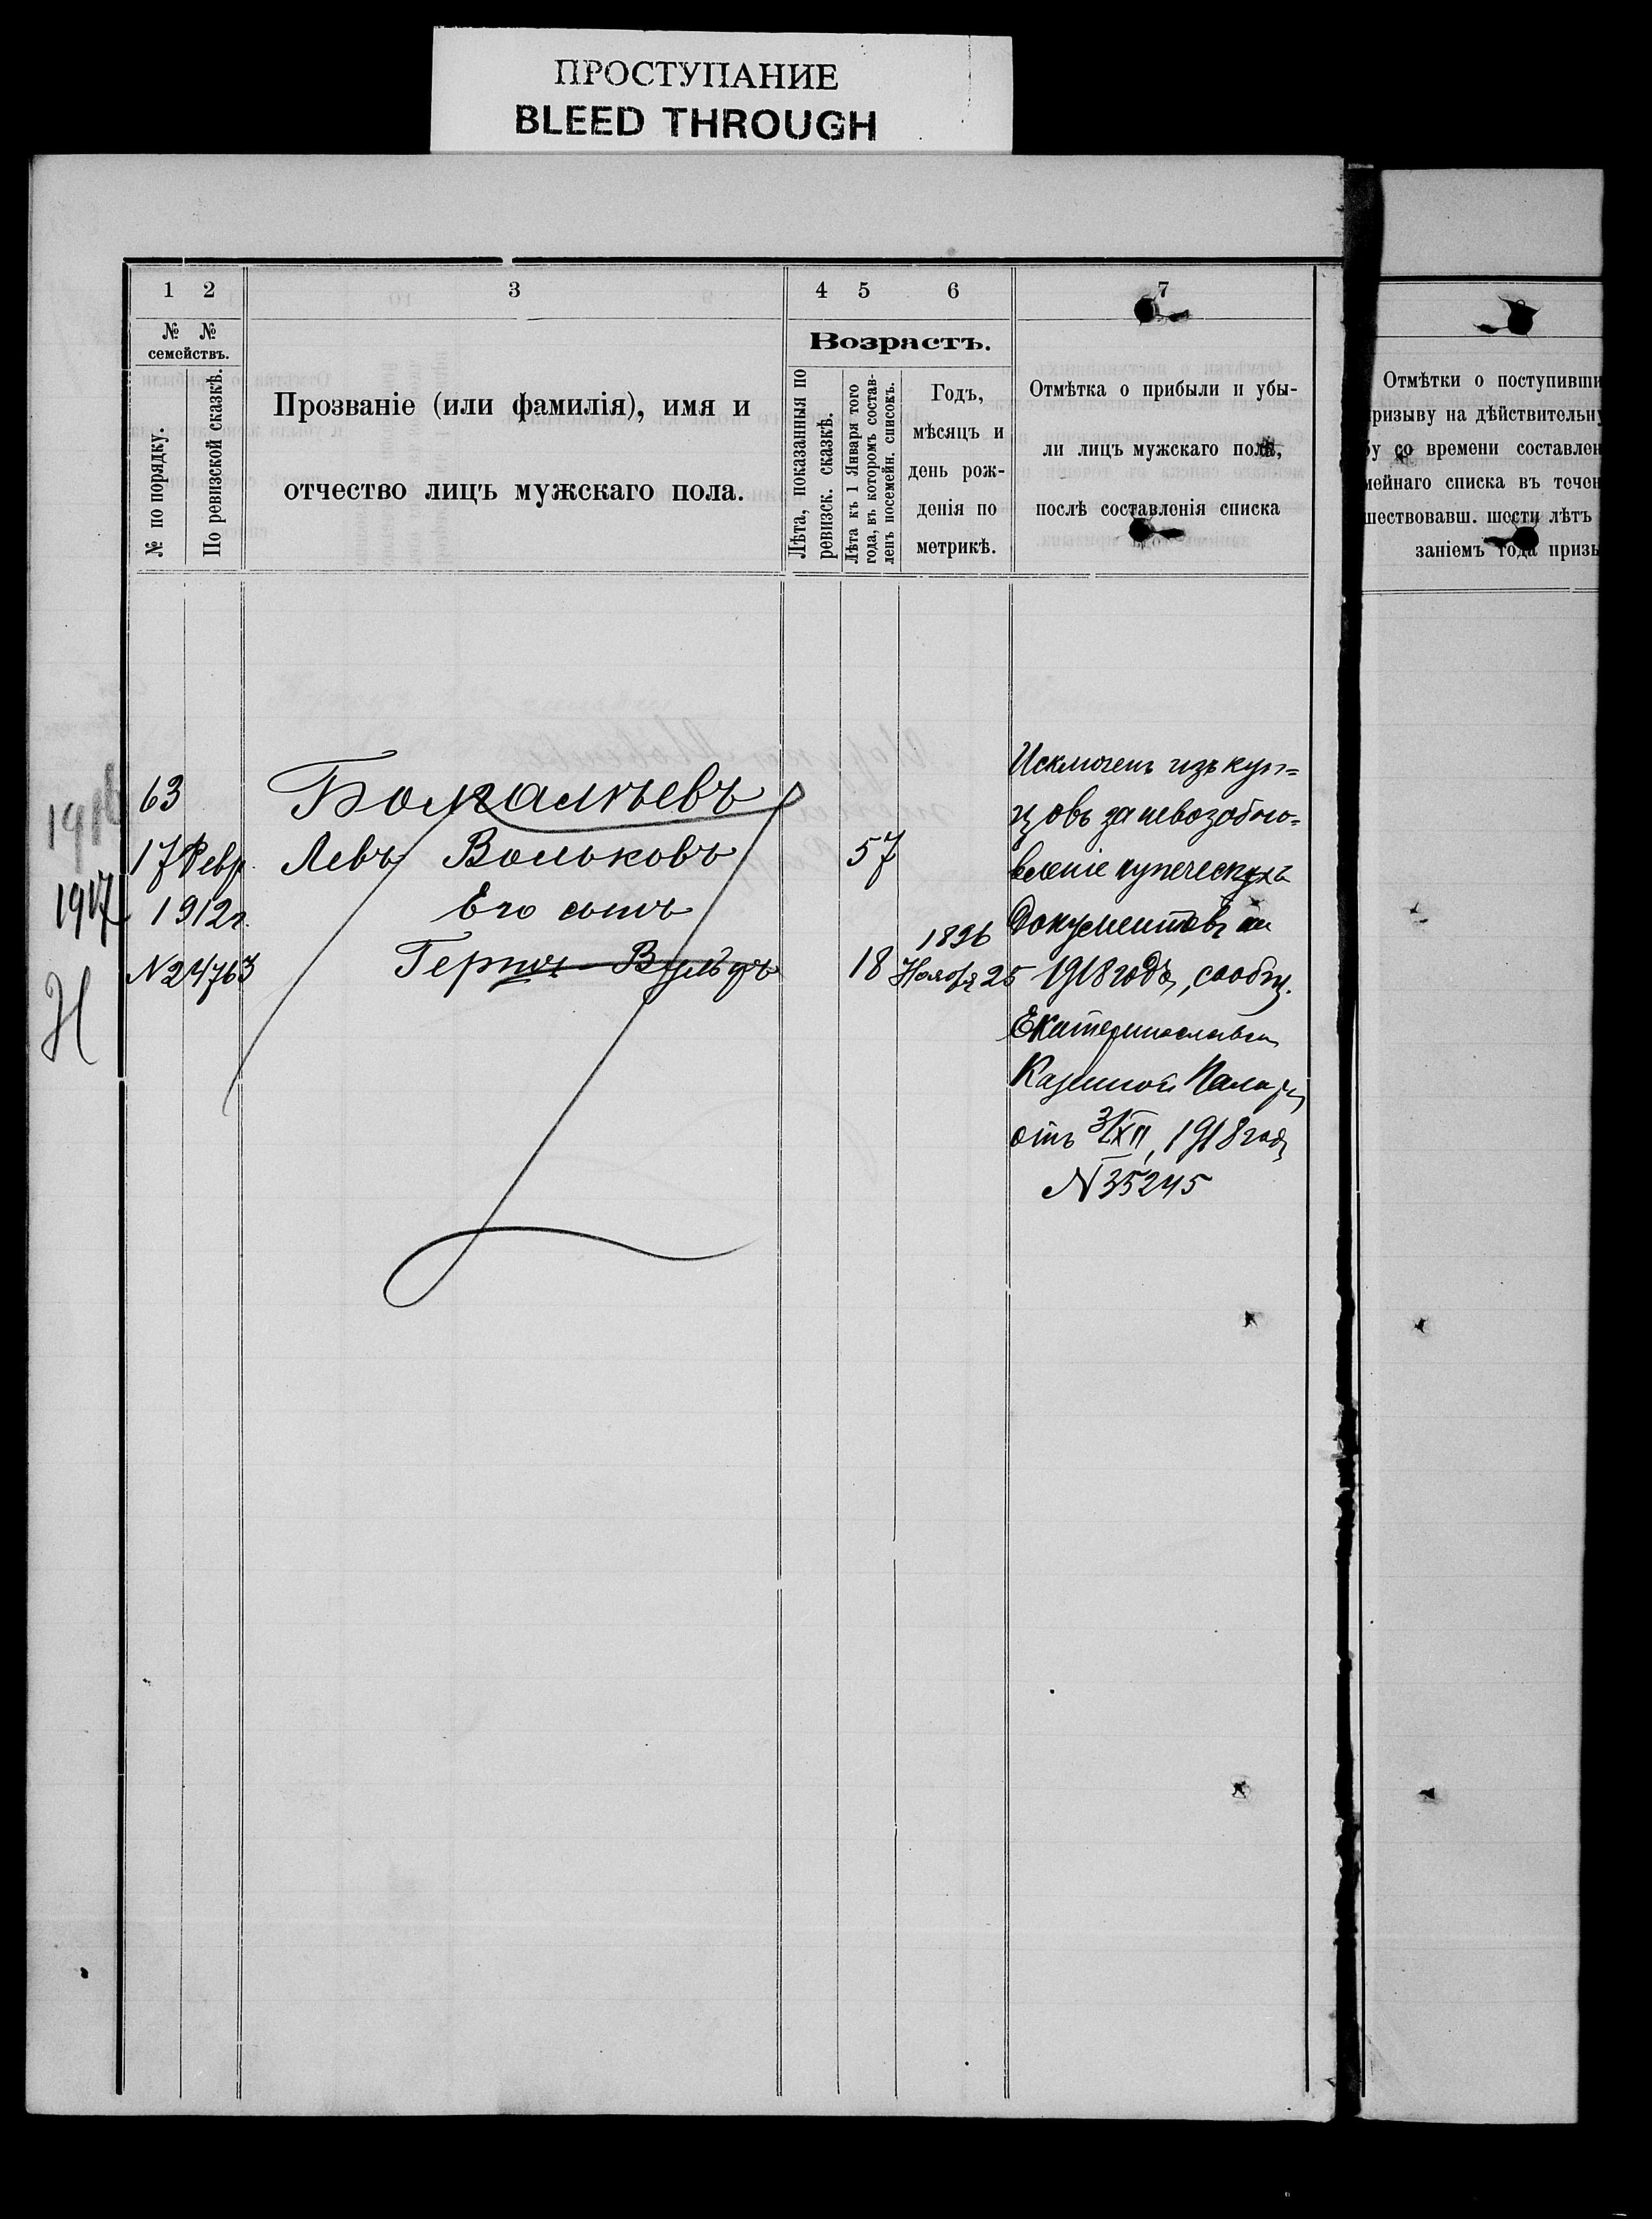 ПРОСТУПАНИЕ
BLEED THROUGH
1 2 3 4 5 6 7
№ № семействъ.
№ по порядку.
По ревизской сказкѣ.
Прозваніе (или фамилія), имя и
отчество лицъ мужскаго пола.
Возрастъ.
Лѣта, показанныя по
ревизск. сказкѣ.
Лѣта къ 1 Января того
года, въ которомъ состав-
ленъ посемейн. списокъ.
Годъ,
мѣсяцъ и
день рож-
денія по
метрикѣ.
Отмѣтка о прибыли и убы-
ли лицъ мужскаго пола,
послѣ составленія списка
Отмѣтки о поступивши
ризыву на дѣйствительну
у со времени составлен
мейнаго списка въ течен
шествовавш. шести лѣтъ
заніемъ года призы
1916
1917
Н
63
17 Февр.
1912г.
N24763
Левъ Вольковъ 57
Его сынъ
Герцъ-Вульфъ 18 1896 Ноября 25
Исключенъ изъ куп=
цовъ за невозобно=
вленіе купеческихъ
документовъ на
1918 годъ, сообщ.
Екатеринославск
Казенной Палаты
отъ 31/XII, 1918 года
N35245